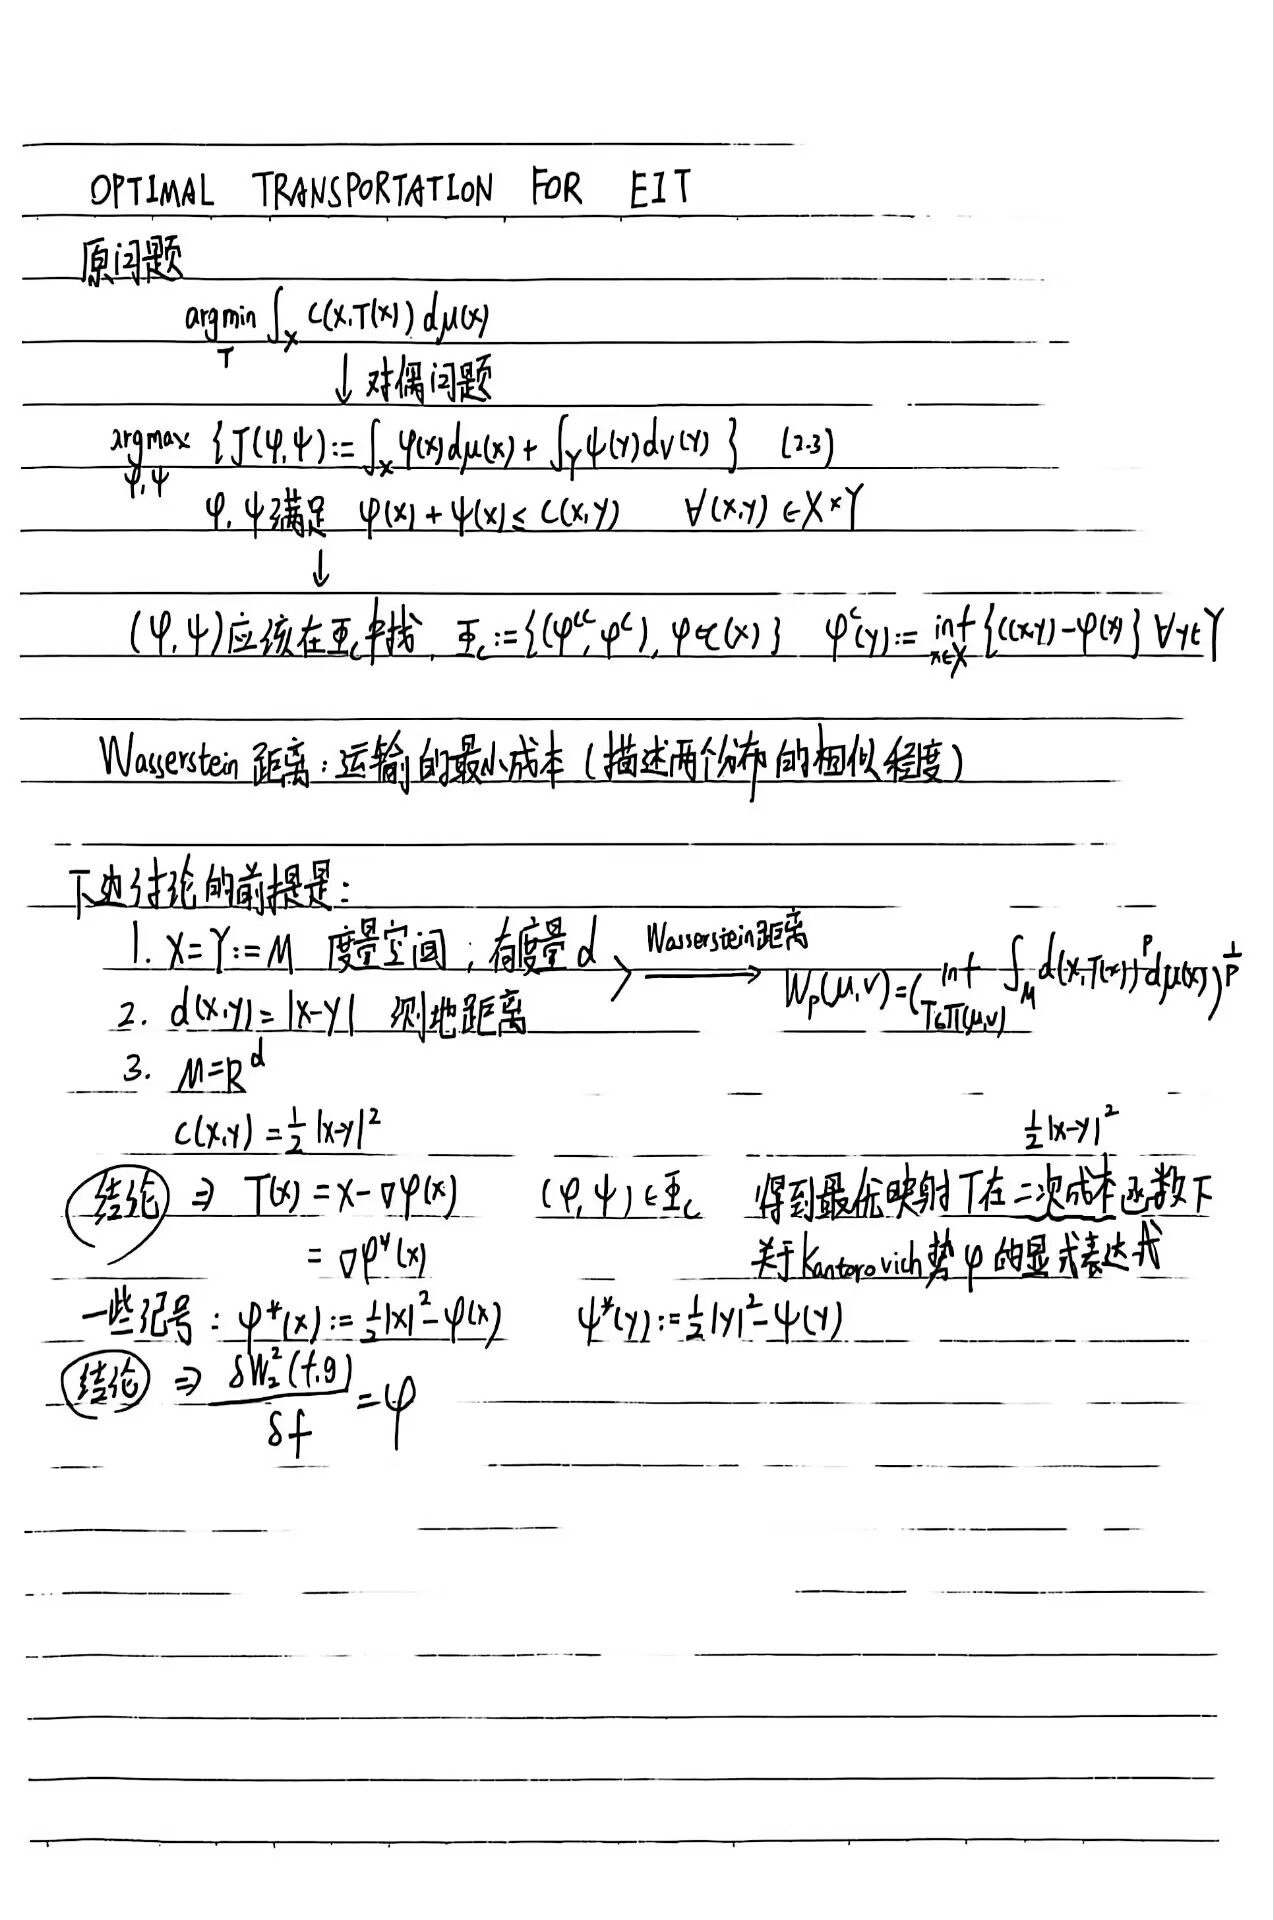 OPTIMAL TRANSPORTATION FOR EIT
原问题
argmin_T ∫_X C(x,T(x)) dμ(x)
↓ 对偶问题
argmax_{φ,ψ} {J(φ,ψ):= ∫_X φ(x)dμ(x) + ∫_Y ψ(y)dν(y)} (2.3)
φ,ψ满足 φ(x)+ψ(x)≤C(x,y) ∀(x,y)∈X×Y
↓
(φ,ψ)应该在Φ_c中找, Φ_c:={(φ^{cc},φ^c), φ∈C(X)} φ^c(y):= inf_{x∈X} {C(x,y)-φ(x)} ∀y∈Y
Wasserstein 距离:运输的最小成本(描述两个分布的相似程度)
下边讨论的前提是:
1. X=Y:=M 度量空间;有度量d
Wasserstein距离
2. d(x,y)=|x-y| 测地距离
W_p(μ,ν)=(inf_{T∈Π(μ,ν)} ∫_M d(x,T(x))^p dμ(x))^{1/p}
3. M=R^d
C(x,y)=½|x-y|²
½|x-y|²
结论 ⇒ T(x)=x-∇φ(x) (φ,ψ)∈Φ_c 得到最优映射T在二次成本函数下
=∇φ*(x) 关于Kantorovich势φ的显式表达式
一些记号: φ*(x):=½|x|²-φ(x) ψ*(y):=½|y|²-ψ(y)
结论 ⇒ δW₂²(f,g)/δf =φ